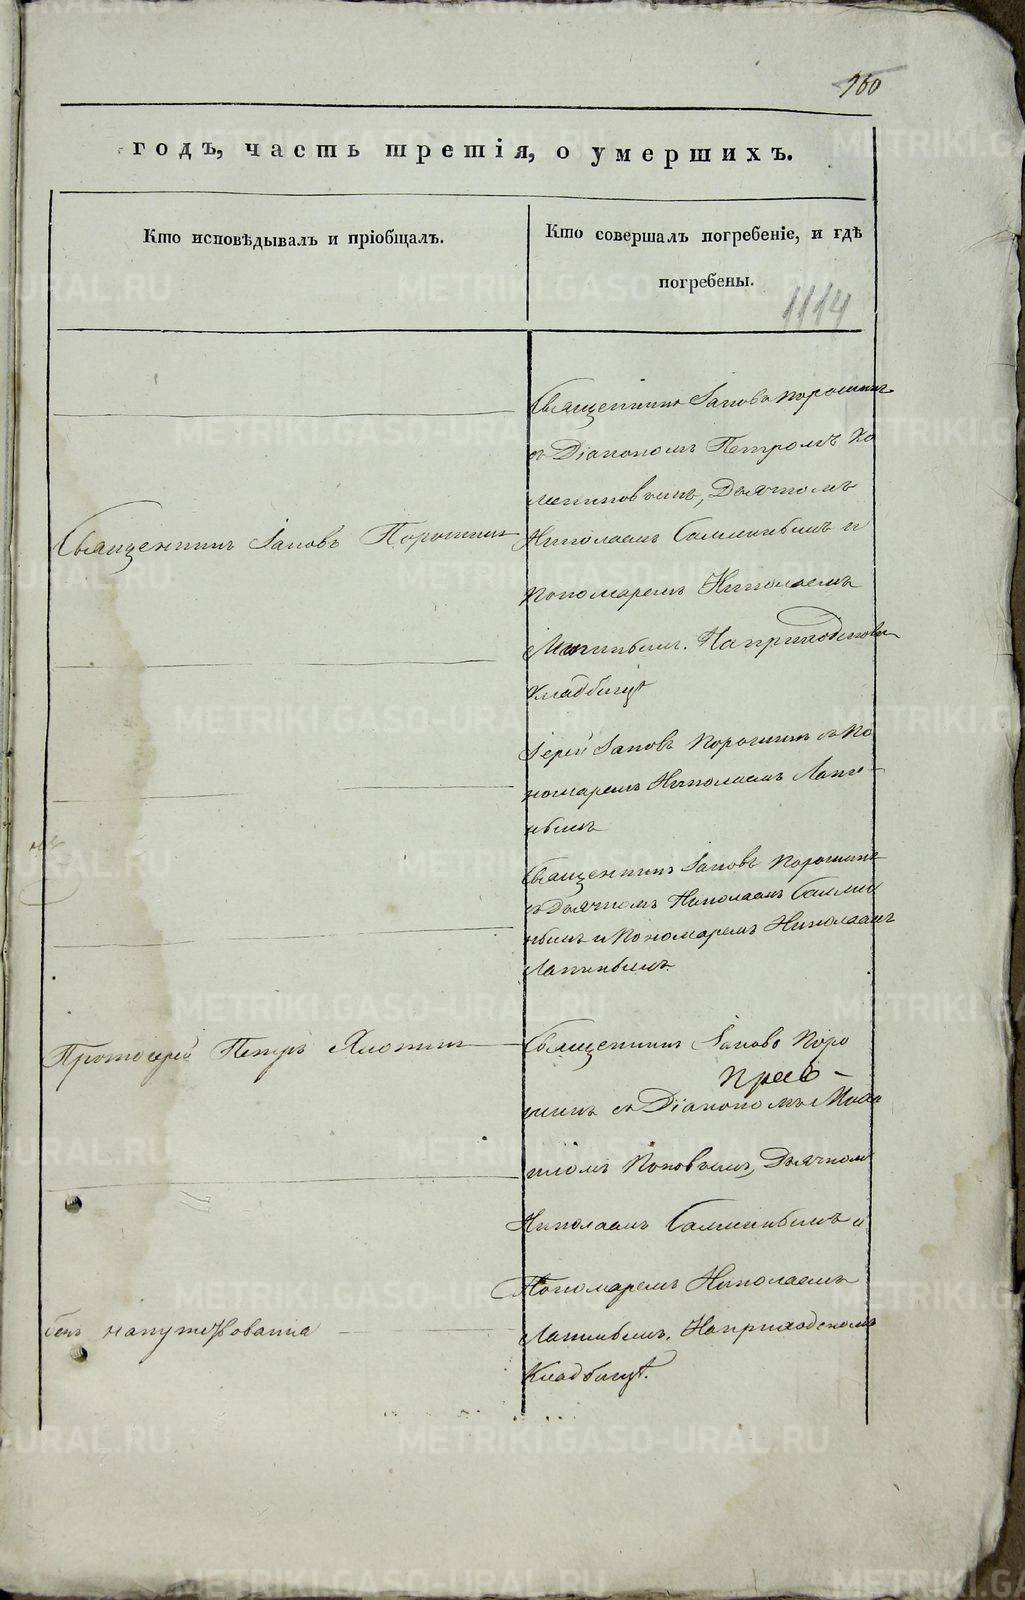 160
годъ, часть третія, о умершихъ.
Кто исповѣдывалъ и пріобщалъ.
Кто совершалъ погребеніе, и гдѣ
погребены.
1114
Священникъ Іаковъ Порошинъ
съ Діакономъ Петромъ
Дьячкомъ
Священникъ Іаковъ Порошинъ
Николаемъ и
Пономаремъ Николаемъ
На приходскомъ
Кладбищѣ
Іерей Іаковъ Порошинъ съ По
номаремъ Николаемъ Лапи-
нымъ
Священникъ Іаковъ Порошинъ
съ Дьячкомъ Николаемъ
нымъ и Пономаремъ Николаемъ
Лапинымъ
Протоіерей Петръ
Священникъ Іаковъ Поро
шинъ съ Діакономъ
Поповымъ, Дьячкомъ
Николаемъ и
Пономаремъ Николаемъ
безъ напутствованія
Лапинымъ. На приходскомъ
Кладбищѣ.
METRIKI.GASO-URAL.RU